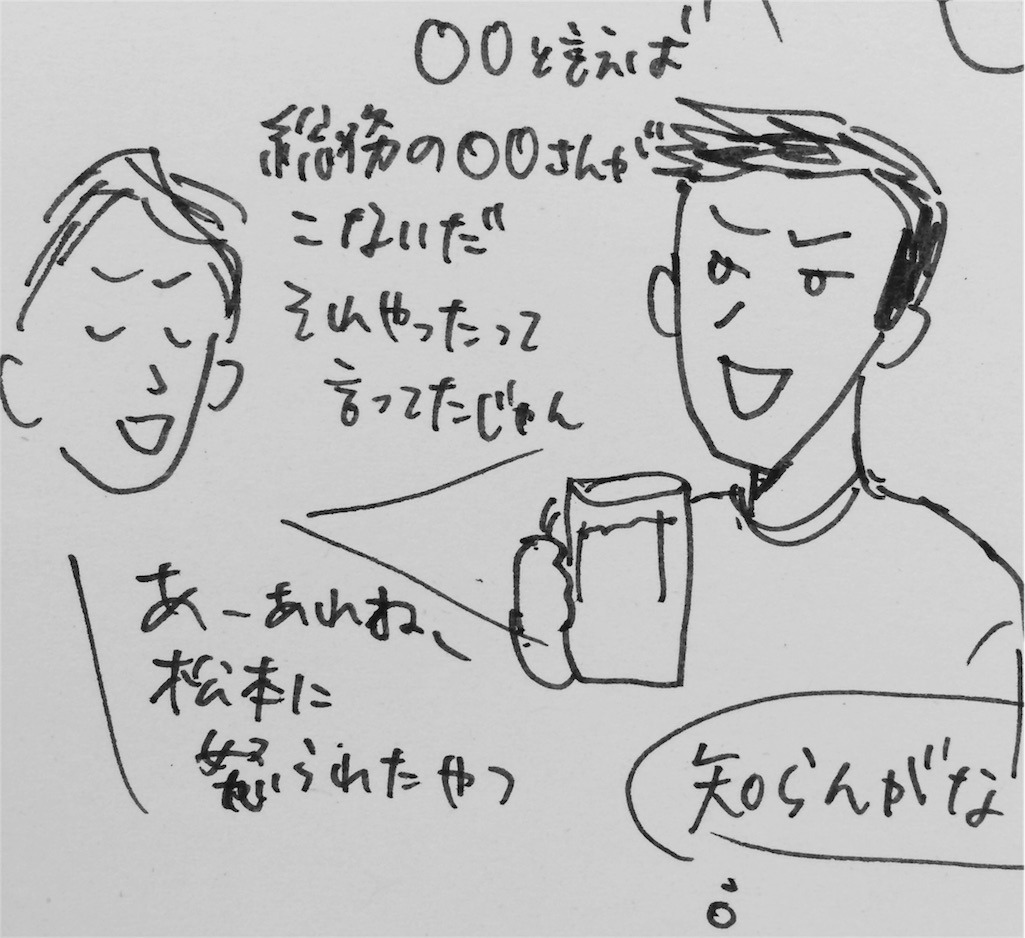 〇〇と言えば
総務の〇〇さんが
こないだ
それやったって
言ってたじゃん
あーあれね、
松本に
怒られたやつ
知らんがな